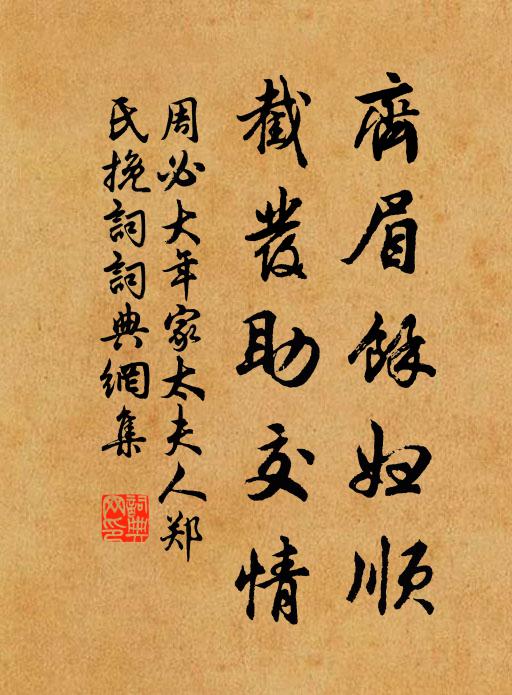 齊眉餘婦順
截發助交情
周必大年家太夫人郑
氏挽詞詞典網集
詞典網印